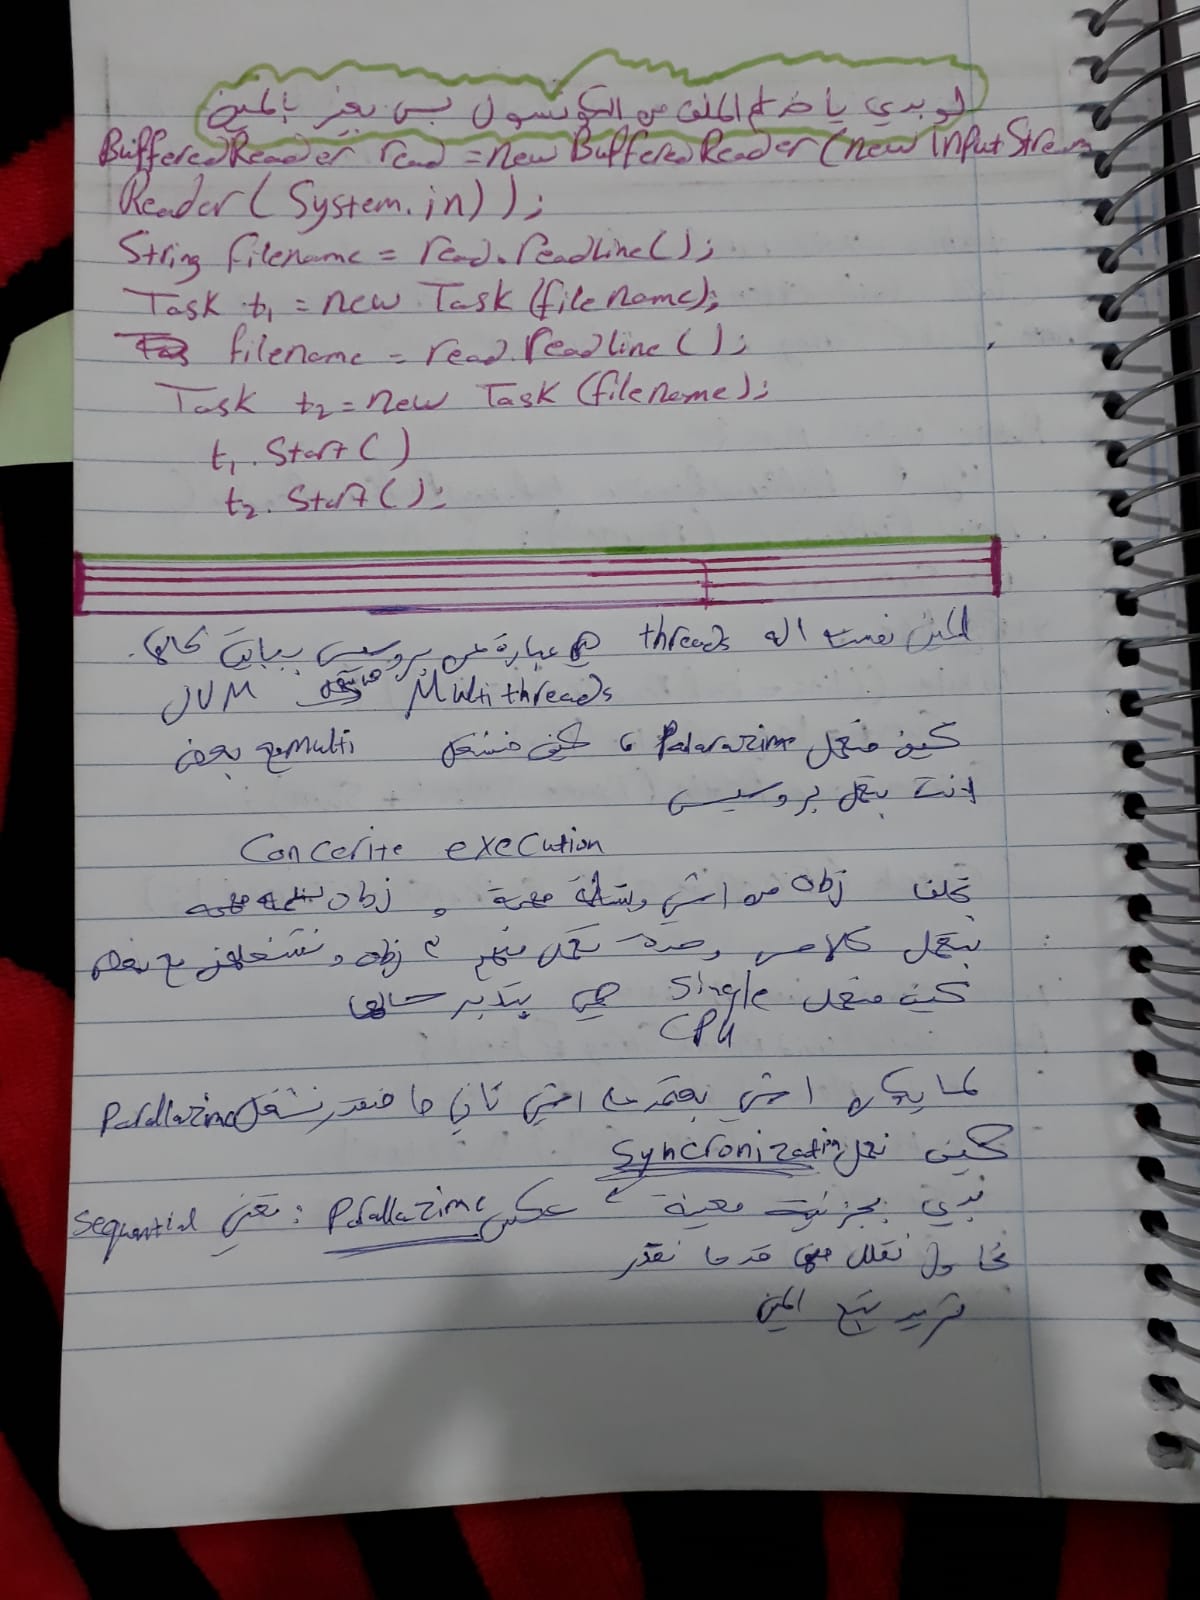 لو بدي ياخد الملف من الكونسول بس بغير بالمين
BufferedReader read = new BufferedReader (new InputStream
Reader ( System.in) ) ;
String filename = read.readLine( ) ;
Task t1 = new Task (filename);
filename = read.readLine ( ) ;
Task t2 = new Task (filename) ;
t1. Start ( )
t2. Start ( ) ;
المين نفسه اله threads هي عبارة عن بروسيس بحالها.
JVM Multithreads
كيف منعمل Palarazime كيف منشغل multi مع بعض
انت بتعمل بروسيس
Concerite execution
مهمة و
بنعمل وحدة و نشغلهم مع بعض
كيف منعمل Single هي بتدبر حالها
CPU
لما يكون اشي بعتمد على اشي ثاني ما منقدر نشغل Parallazime
كيف نعمل Syncronization
بدي بجزئية معينة عكس Parallazime : تعني sequential
نحاول نقلل منها قد ما نقدر
ثريد تبع المين